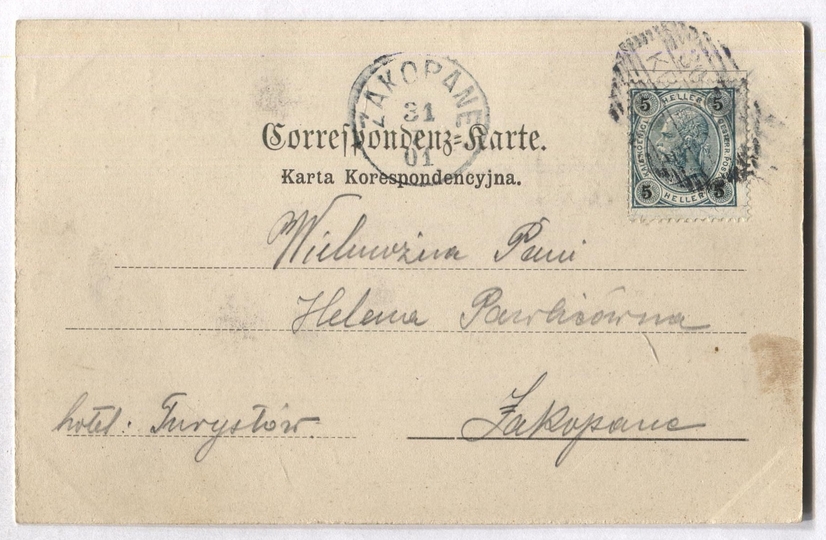 ZAKOPANE
31
01
Correspondenz-Karte.
Karta Korespondencyjna.
5 HELLER 5
5 HELLER 5
Wielmożna Pani
Helena Pawlicówna
hotel. Turystów
Zakopane